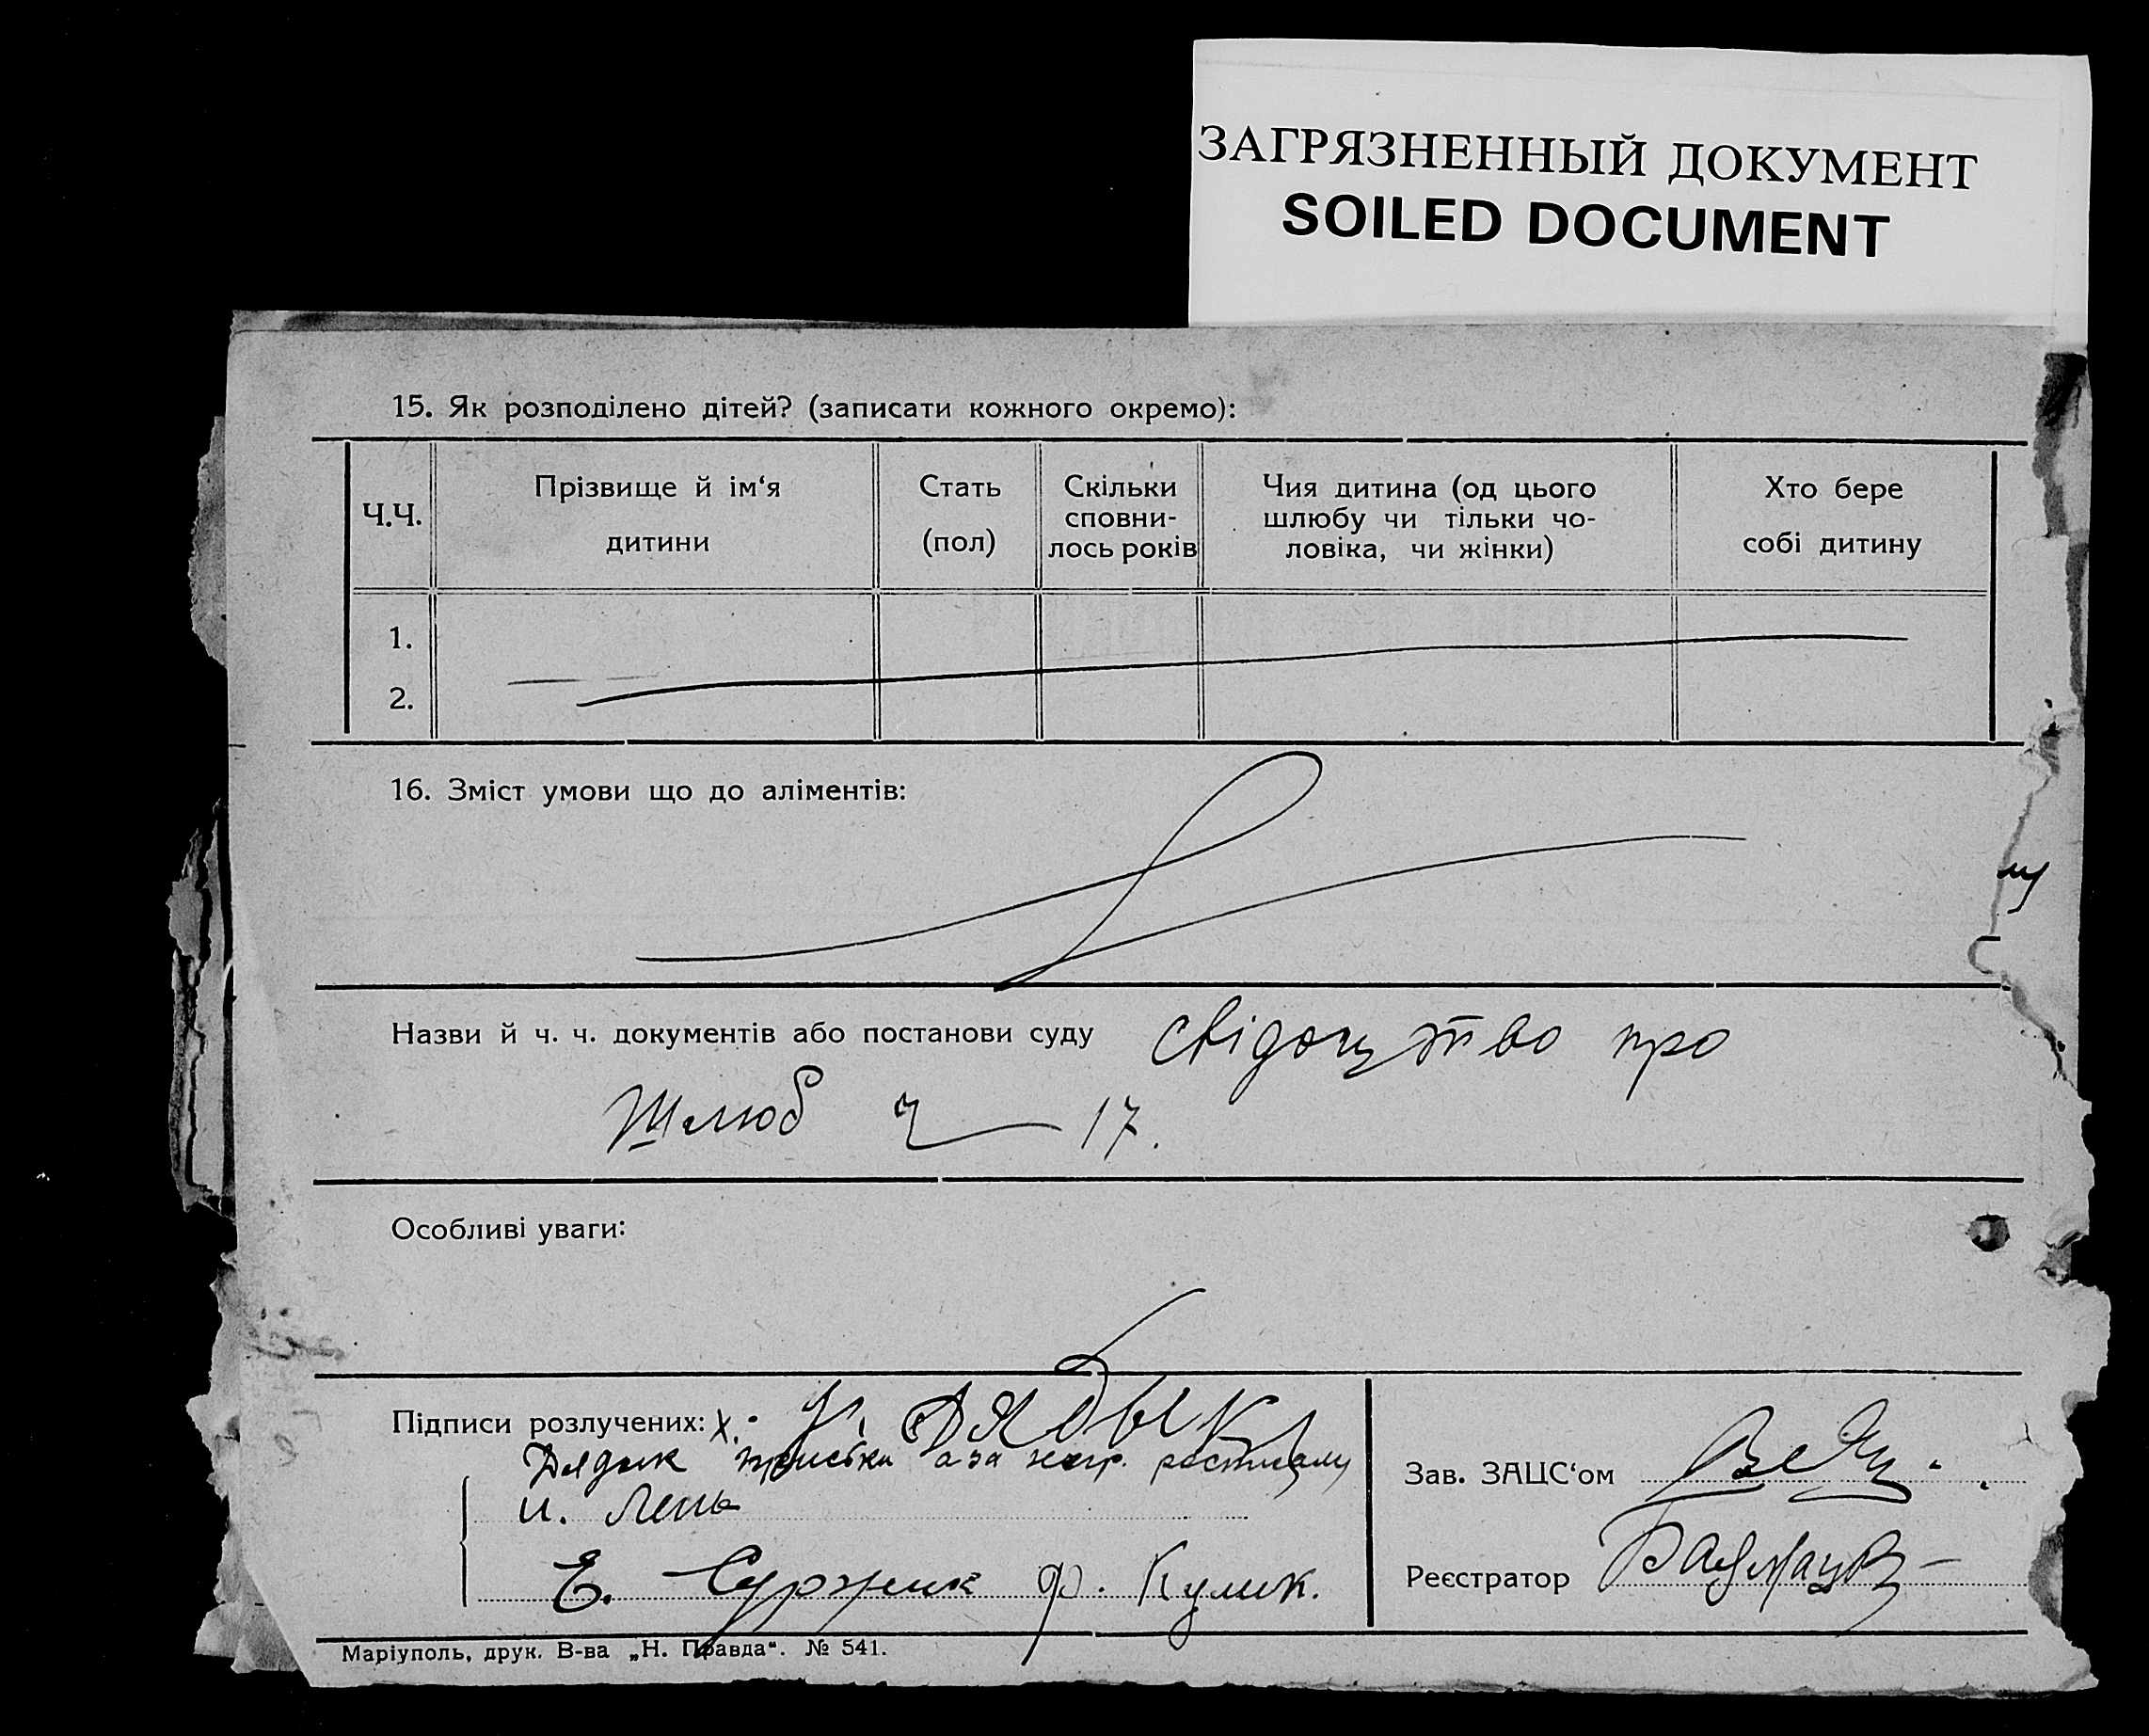 ЗАГРЯЗНЕННЫЙ ДОКУМЕНТ
SOILED DOCUMENT
15. Як розподілено дітей? (записати кожного окремо):
Ч.Ч.
Прізвище й ім‘я
дитини
Стать
(пол)
Скільки
сповни-
лось років
Чия дитина (од цього
шлюбу чи тільки чо-
ловіка, чи жінки)
Хто бере
собі дитину
1.
2.
16. Зміст умови що до аліментів:
Назви й ч. ч. документів або постанови суду свідоцтво про
Шлюб ч 17.
Особливі уваги:
Підписи розлучених: Х.
Дядик
и. Лень
Е. Ф. Кулик.
Зав. ЗАЦС‘ом
Реєстратор
Маріуполь, друк. В-ва „Н. Правда“. № 541.